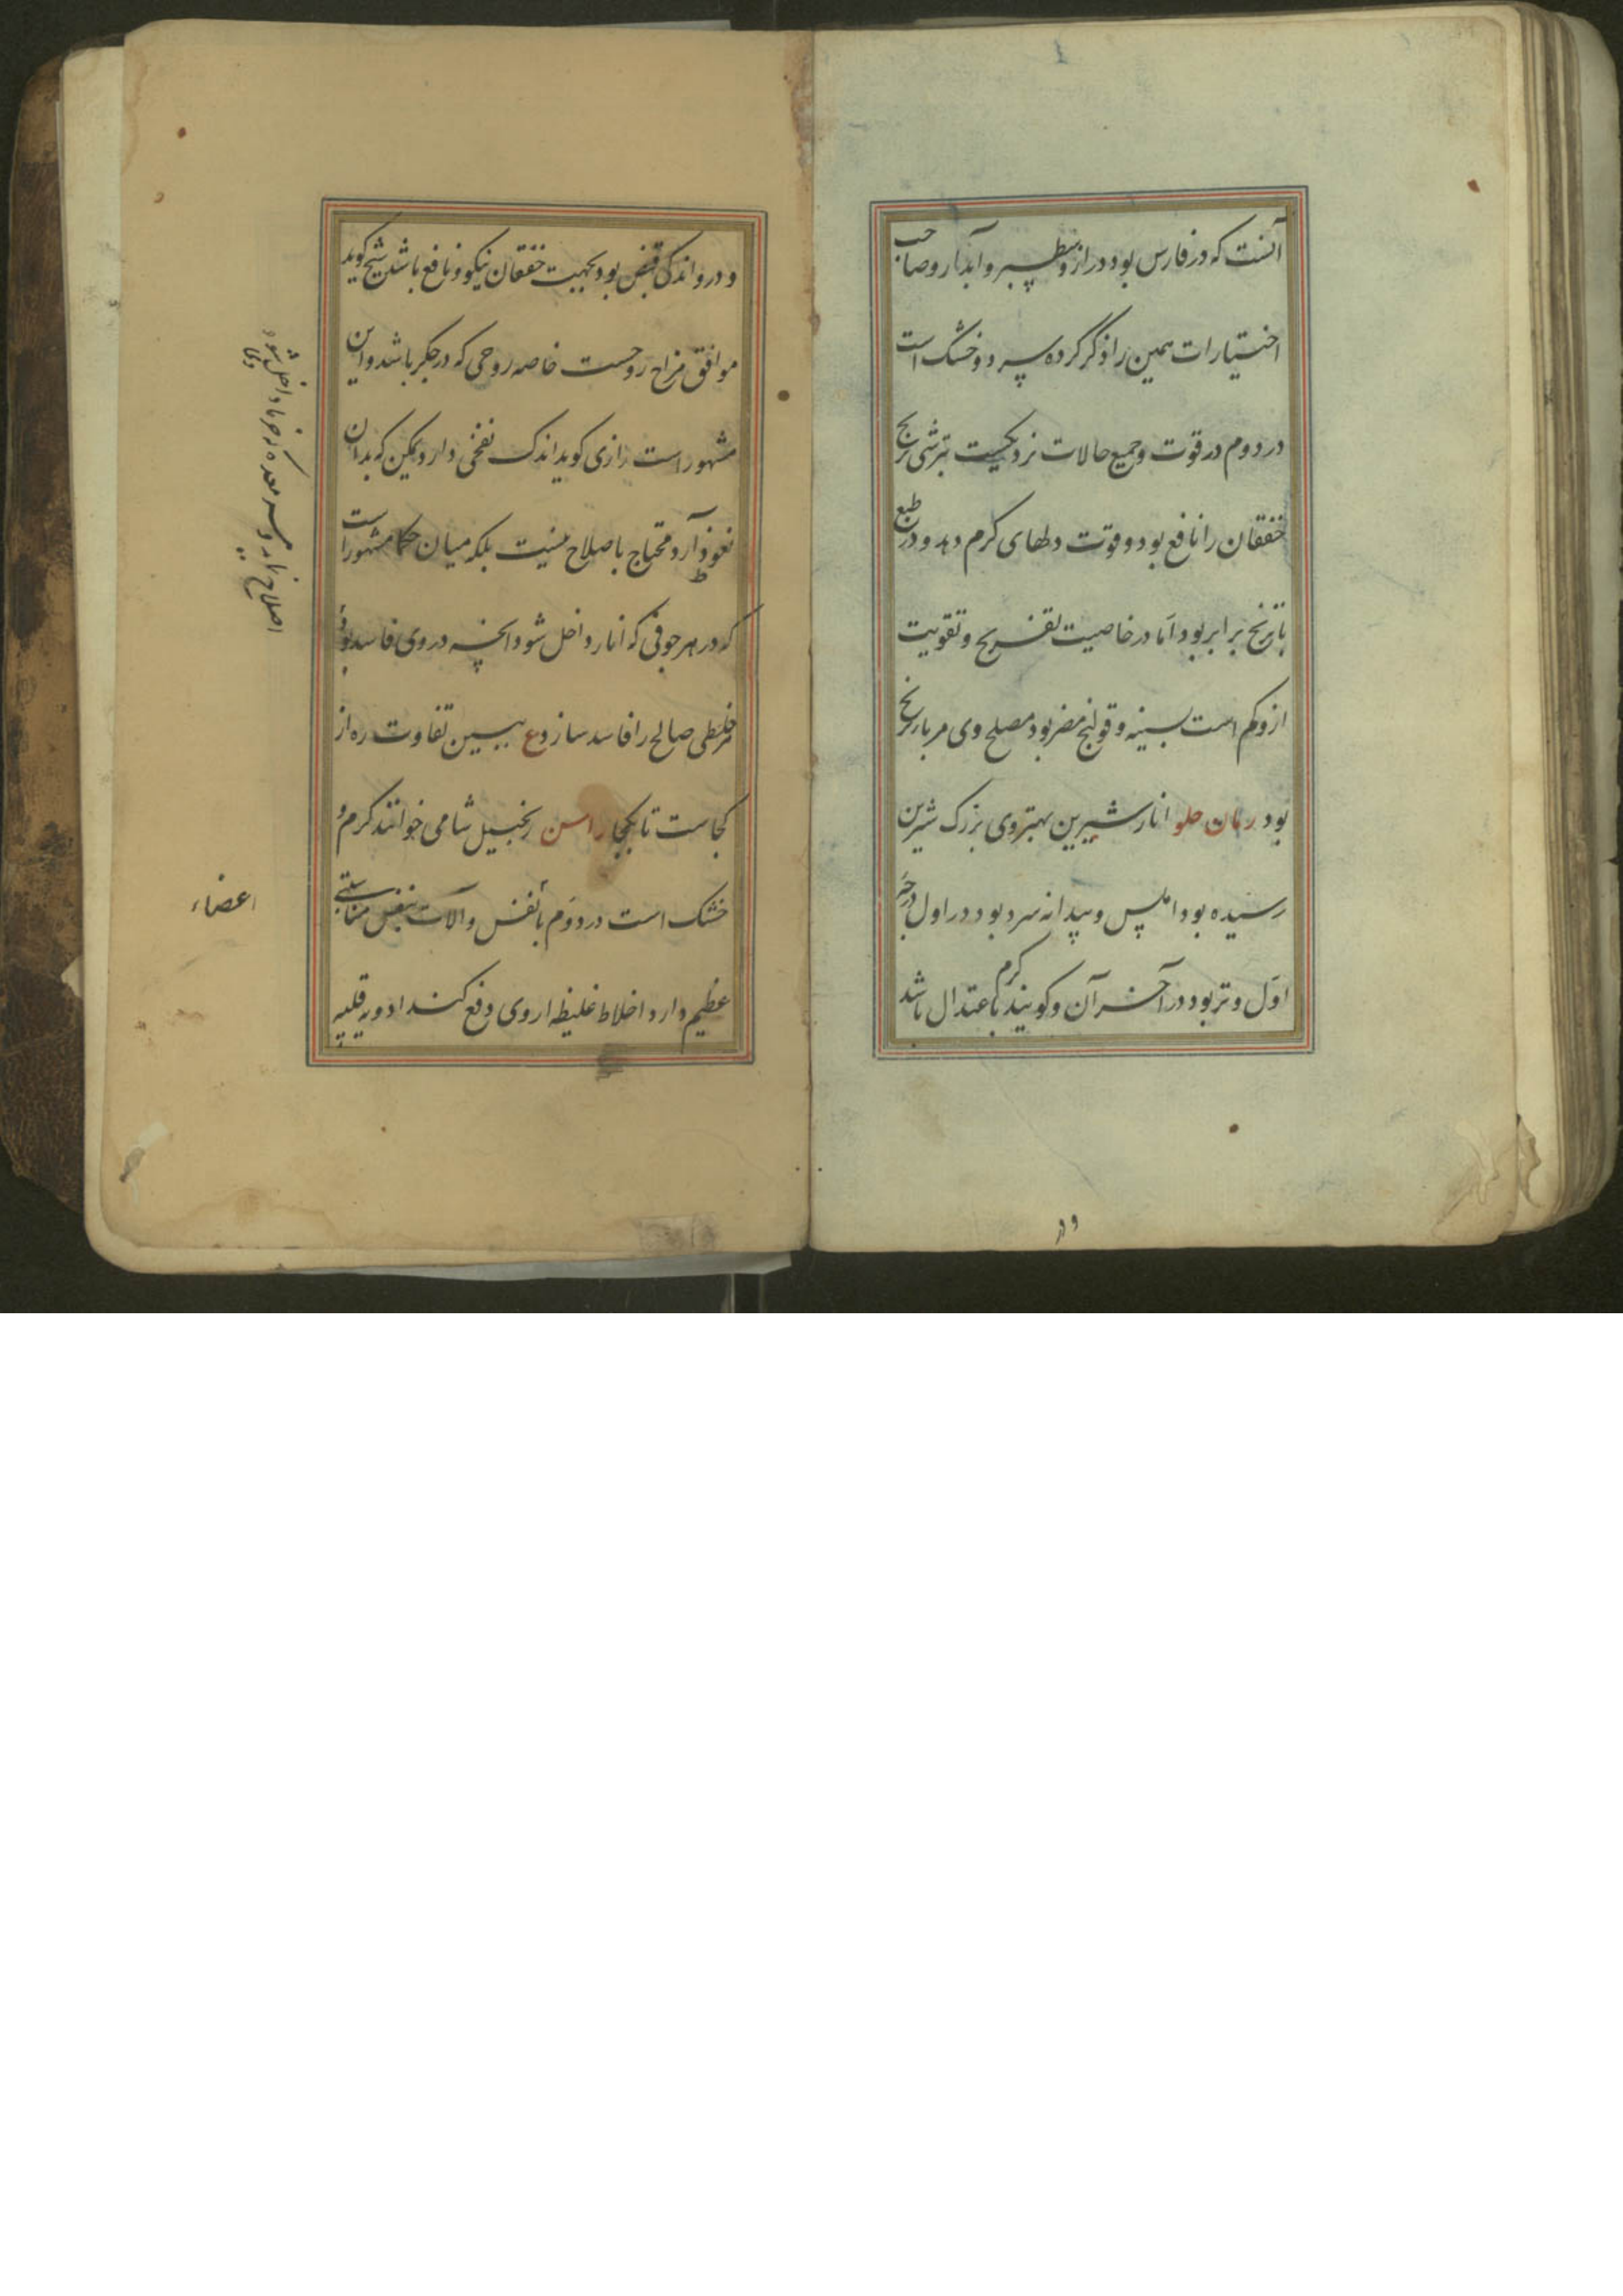 آنست که در فارس بود دراز و سطبر و آبدار و صاحب
اختیارات همین را ذکر کرده سرد و خشک است
در دوم در قوت و جمیع حالات نزدیکست بترشی ترنج
خفقان را نافع بود و قوت دلهای کرم دهد و در طبع
باترنج برابر بود اما در خاصیت تفریح و تقویت
ازو کم است بسینه و قولنج مضر بود مصلح وی مربا ترنج
بود رمان حلو انار شیرین بهتر وی بزرک شیرین
رسیده بود املس و بیدانه سرد بود در اول درجه
اول و تر بود در آخر آن و کویند کرم باعتدال باشد
و در
و درو اندکی قبض بود بجهت خفقان نیکو و نافع باشد شیخ کوید
موافق مزاج روحست خاصه روحی که در جکر باشد و این
مشهور است رازی کوید اندک نفخی دارد لیکن که بدان
نعوظ آرد و محتاج باصلاح نیست بلکه میان حکما مشهور است
که در هر جوفی که انار داخل شود انچه در وی فاسد بود
صالح را فاسد سازد ع ببین تفاوت ره از
کجاست تا بکجا راسن زنجبیل شامی خوانند کرم و
خشک است در دوم با نفس و آلات تنفس مناسبتی
عظیم دارد اخلاط غلیظ از وی دفع کند ادویه قلبیه
اصلاح نماید معده که خرما داخل شود
اعضاء